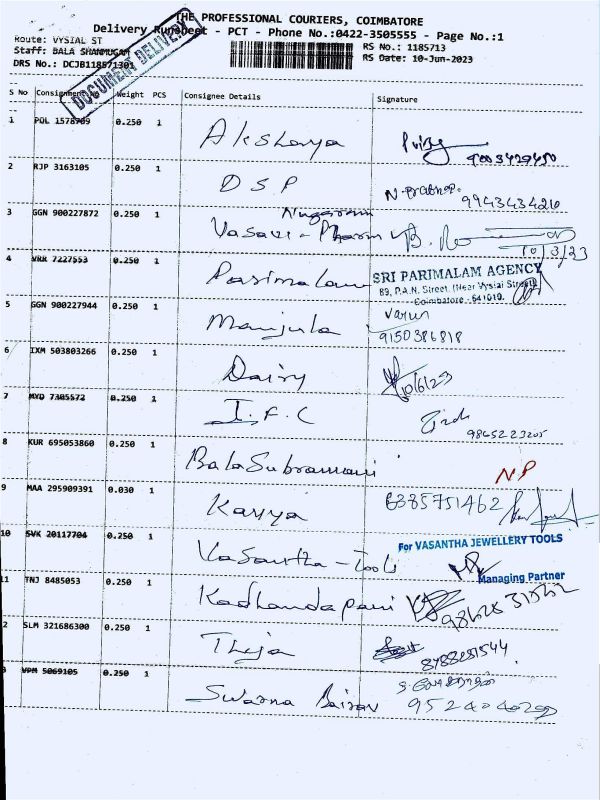 THE PROFESSIONAL COURIERS, COIMBATORE
Delivery Runsheet - PCT - Phone No.:0422-3505555 - Page No.:1
Route: VYSIAL ST
Staff: BALA SHANMUGAM
DRS No.: DCJB118571301
RS No.: 1185713
RS Date: 10-Jun-2023
DOCUMENT DELIVERY
S No Consignment No Weight PCS Consignee Details Signature
1 POL 1578709 0.250 1 Akshaya 9003429450
2 RJP 3163105 0.250 1 DSP 9943434210
3 GGN 900227872 0.250 1 Vasavi - Pharm
10/3/23
4 VRR 7227553 0.250 1 Parimalam SRI PARIMALAM AGENCY
89, P.A.N. Street, (Near Vysial Street)
Coimbatore - 641019.
5 GGN 900227944 0.250 1 Manjula Varun
9150386818
6 IXM 503803266 0.250 1 Dairy 10/6/23
7 MYD 7305572 0.250 1 I.F.C
9865223205
8 KUR 695053860 0.250 1 BalaSubramani NP
9 MAA 295909391 0.030 1 Kavya 6385751462
10 SVK 20117704 0.250 1 Vasantha - Tools For VASANTHA JEWELLERY TOOLS
Managing Partner
11 TNJ 8485053 0.250 1 Kadhandapani
2 SLM 321686300 0.250 1 Theja 8488281544
3 VPM 5069105 0.250 1 Swarna Bairav